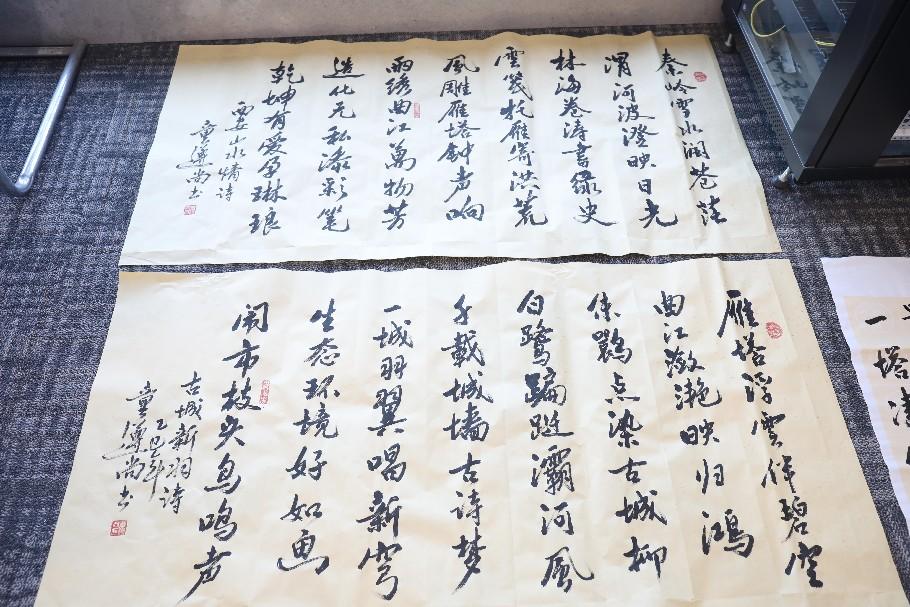 秦岭雪水润苍茫
渭河波澄映日光
林海卷涛书绿史
雲笺托雁寄洪荒
風雕雁塔鈡声响
雨绣曲江萬物芳
造化无私添彩笔
乾坤有爱孕琳琅
西安山水情诗
童遵尚书
雁塔浮雲伴碧空
曲江潋滟映归鸿
朱鹮点染古城柳
白鹭蹁跹灞河風
千載城墙古诗梦
一城羽翼唱新穹
生态环境好如画
闹市枝头鸟鸣声
古城新羽诗
乙巳年
童遵尚书
塔
一